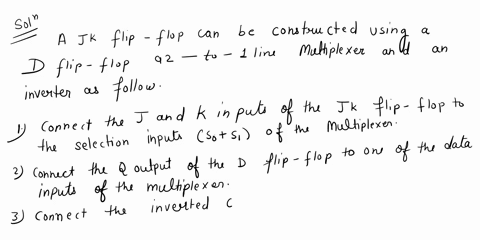 Solⁿ
A JK flip-flop can be constructed using a
D flip-flop a2 - to - 1 line Multiplexer and an
inverter as follow.
1) Connect the J and K inputs of the JK flip-flop to
the selection inputs (S0+S1) of the Multiplexer.
2) Connect the Q output of the D flip-flop to one of the data
inputs of the multiplexer.
3) Connect the inverted C